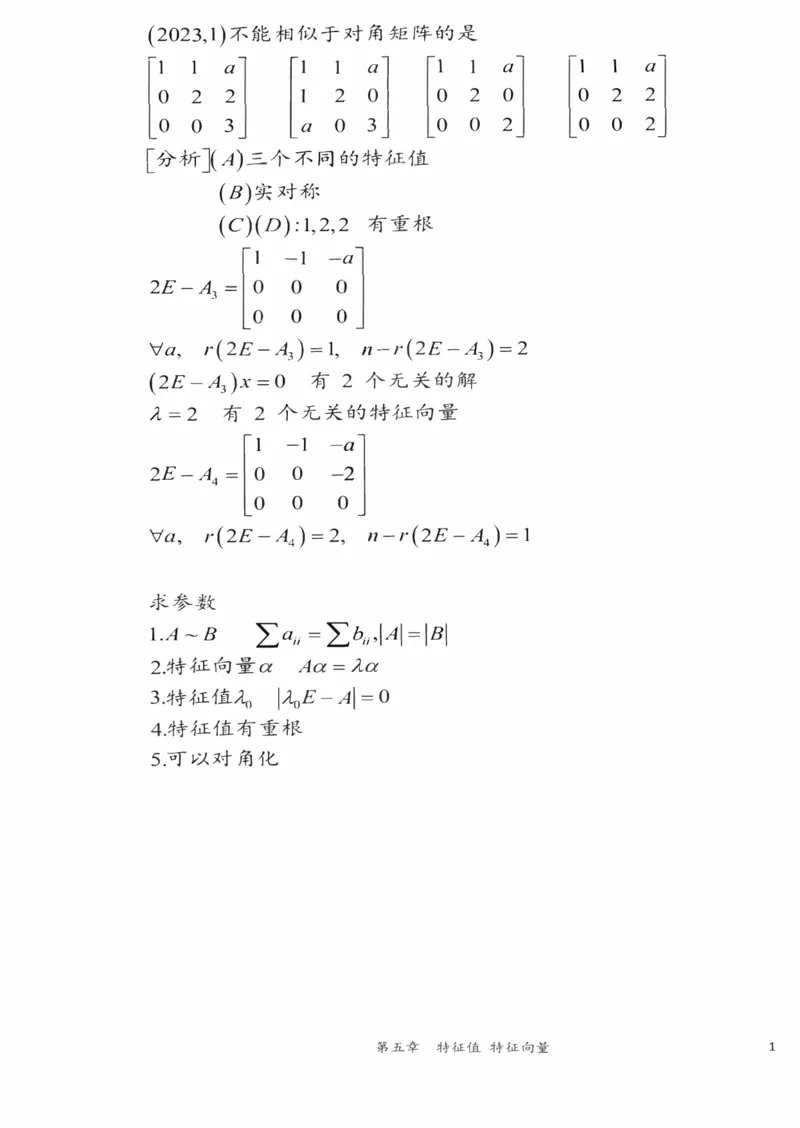 (2023,1)不能相似于对角矩阵的是
[1 1 a] [1 1 a] [1 1 a] [1 1 a]
[0 2 2] [1 2 0] [0 2 0] [0 2 2]
[0 0 3] [a 0 3] [0 0 2] [0 0 2]
[分析](A)三个不同的特征值
(B)实对称
(C)(D):1,2,2 有重根
[1 −1 −a]
2E − A₃ = [0 0 0]
[0 0 0]
∀a, r(2E − A₃) = 1, n − r(2E − A₃) = 2
(2E − A₃)x = 0 有 2 个无关的解
λ = 2 有 2 个无关的特征向量
[1 −1 −a]
2E − A₄ = [0 0 −2]
[0 0 0]
∀a, r(2E − A₄) = 2, n − r(2E − A₄) = 1
求参数
1.A ~ B ∑aᵢᵢ = ∑bᵢᵢ,|A| = |B|
2.特征向量α Aα = λα
3.特征值λ₀ |λ₀E − A| = 0
4.特征值有重根
5.可以对角化
第五章 特征值 特征向量 1